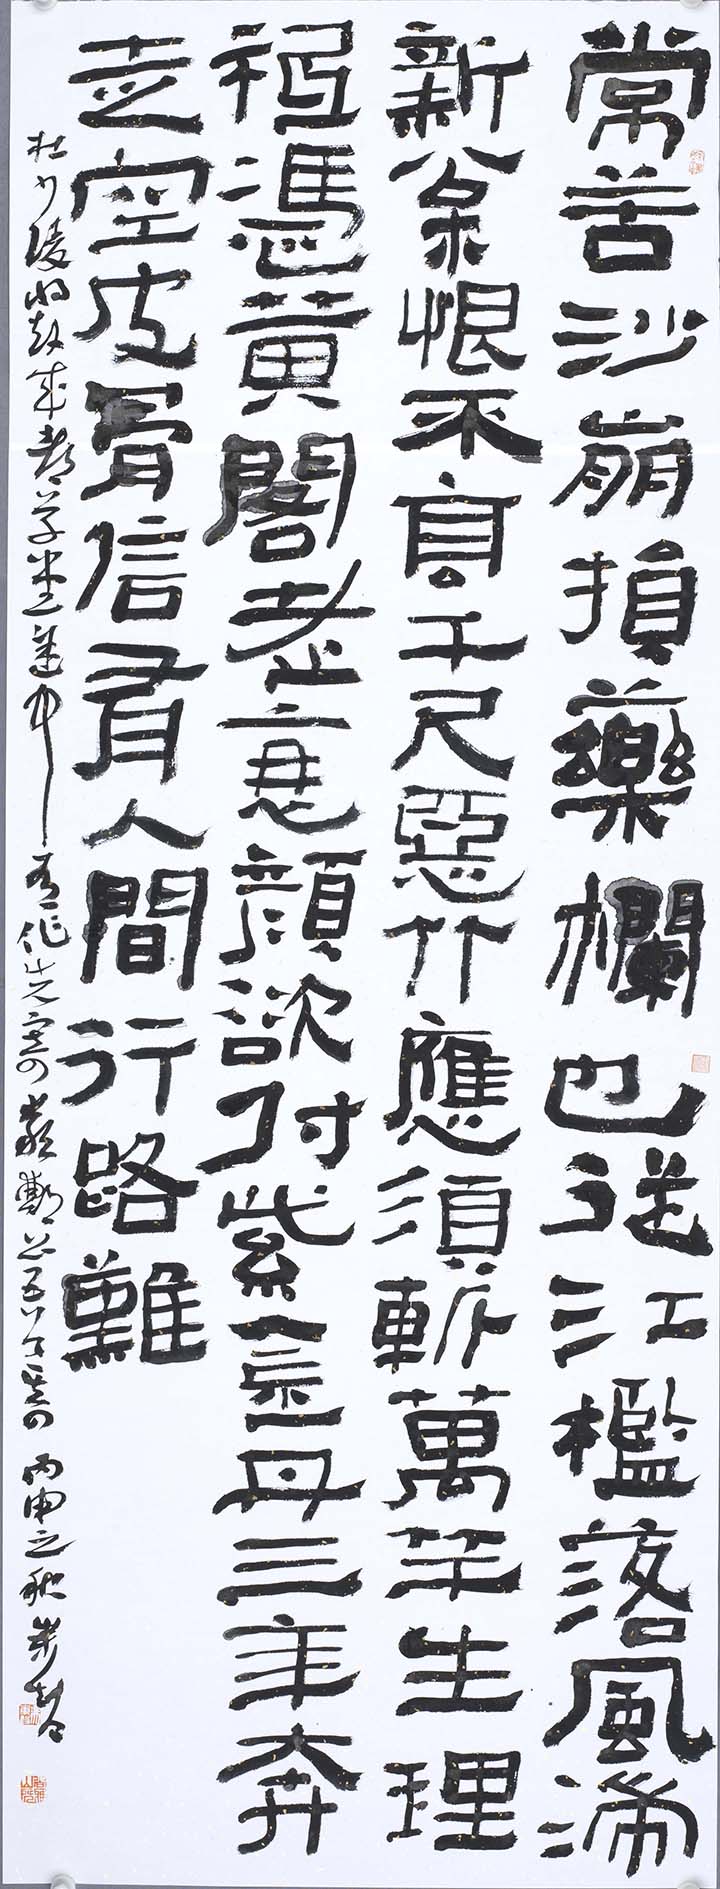 常苦沙崩損藥欄也從江檻落風湍
新松恨不高千尺惡竹應須斬萬竿生理
祗憑黃閣老衰顏欲付紫金丹三年奔
走空皮骨信有人間行路難
杜少陵將赴成都草堂途中有作先寄嚴鄭公五首其四 丙申之秋